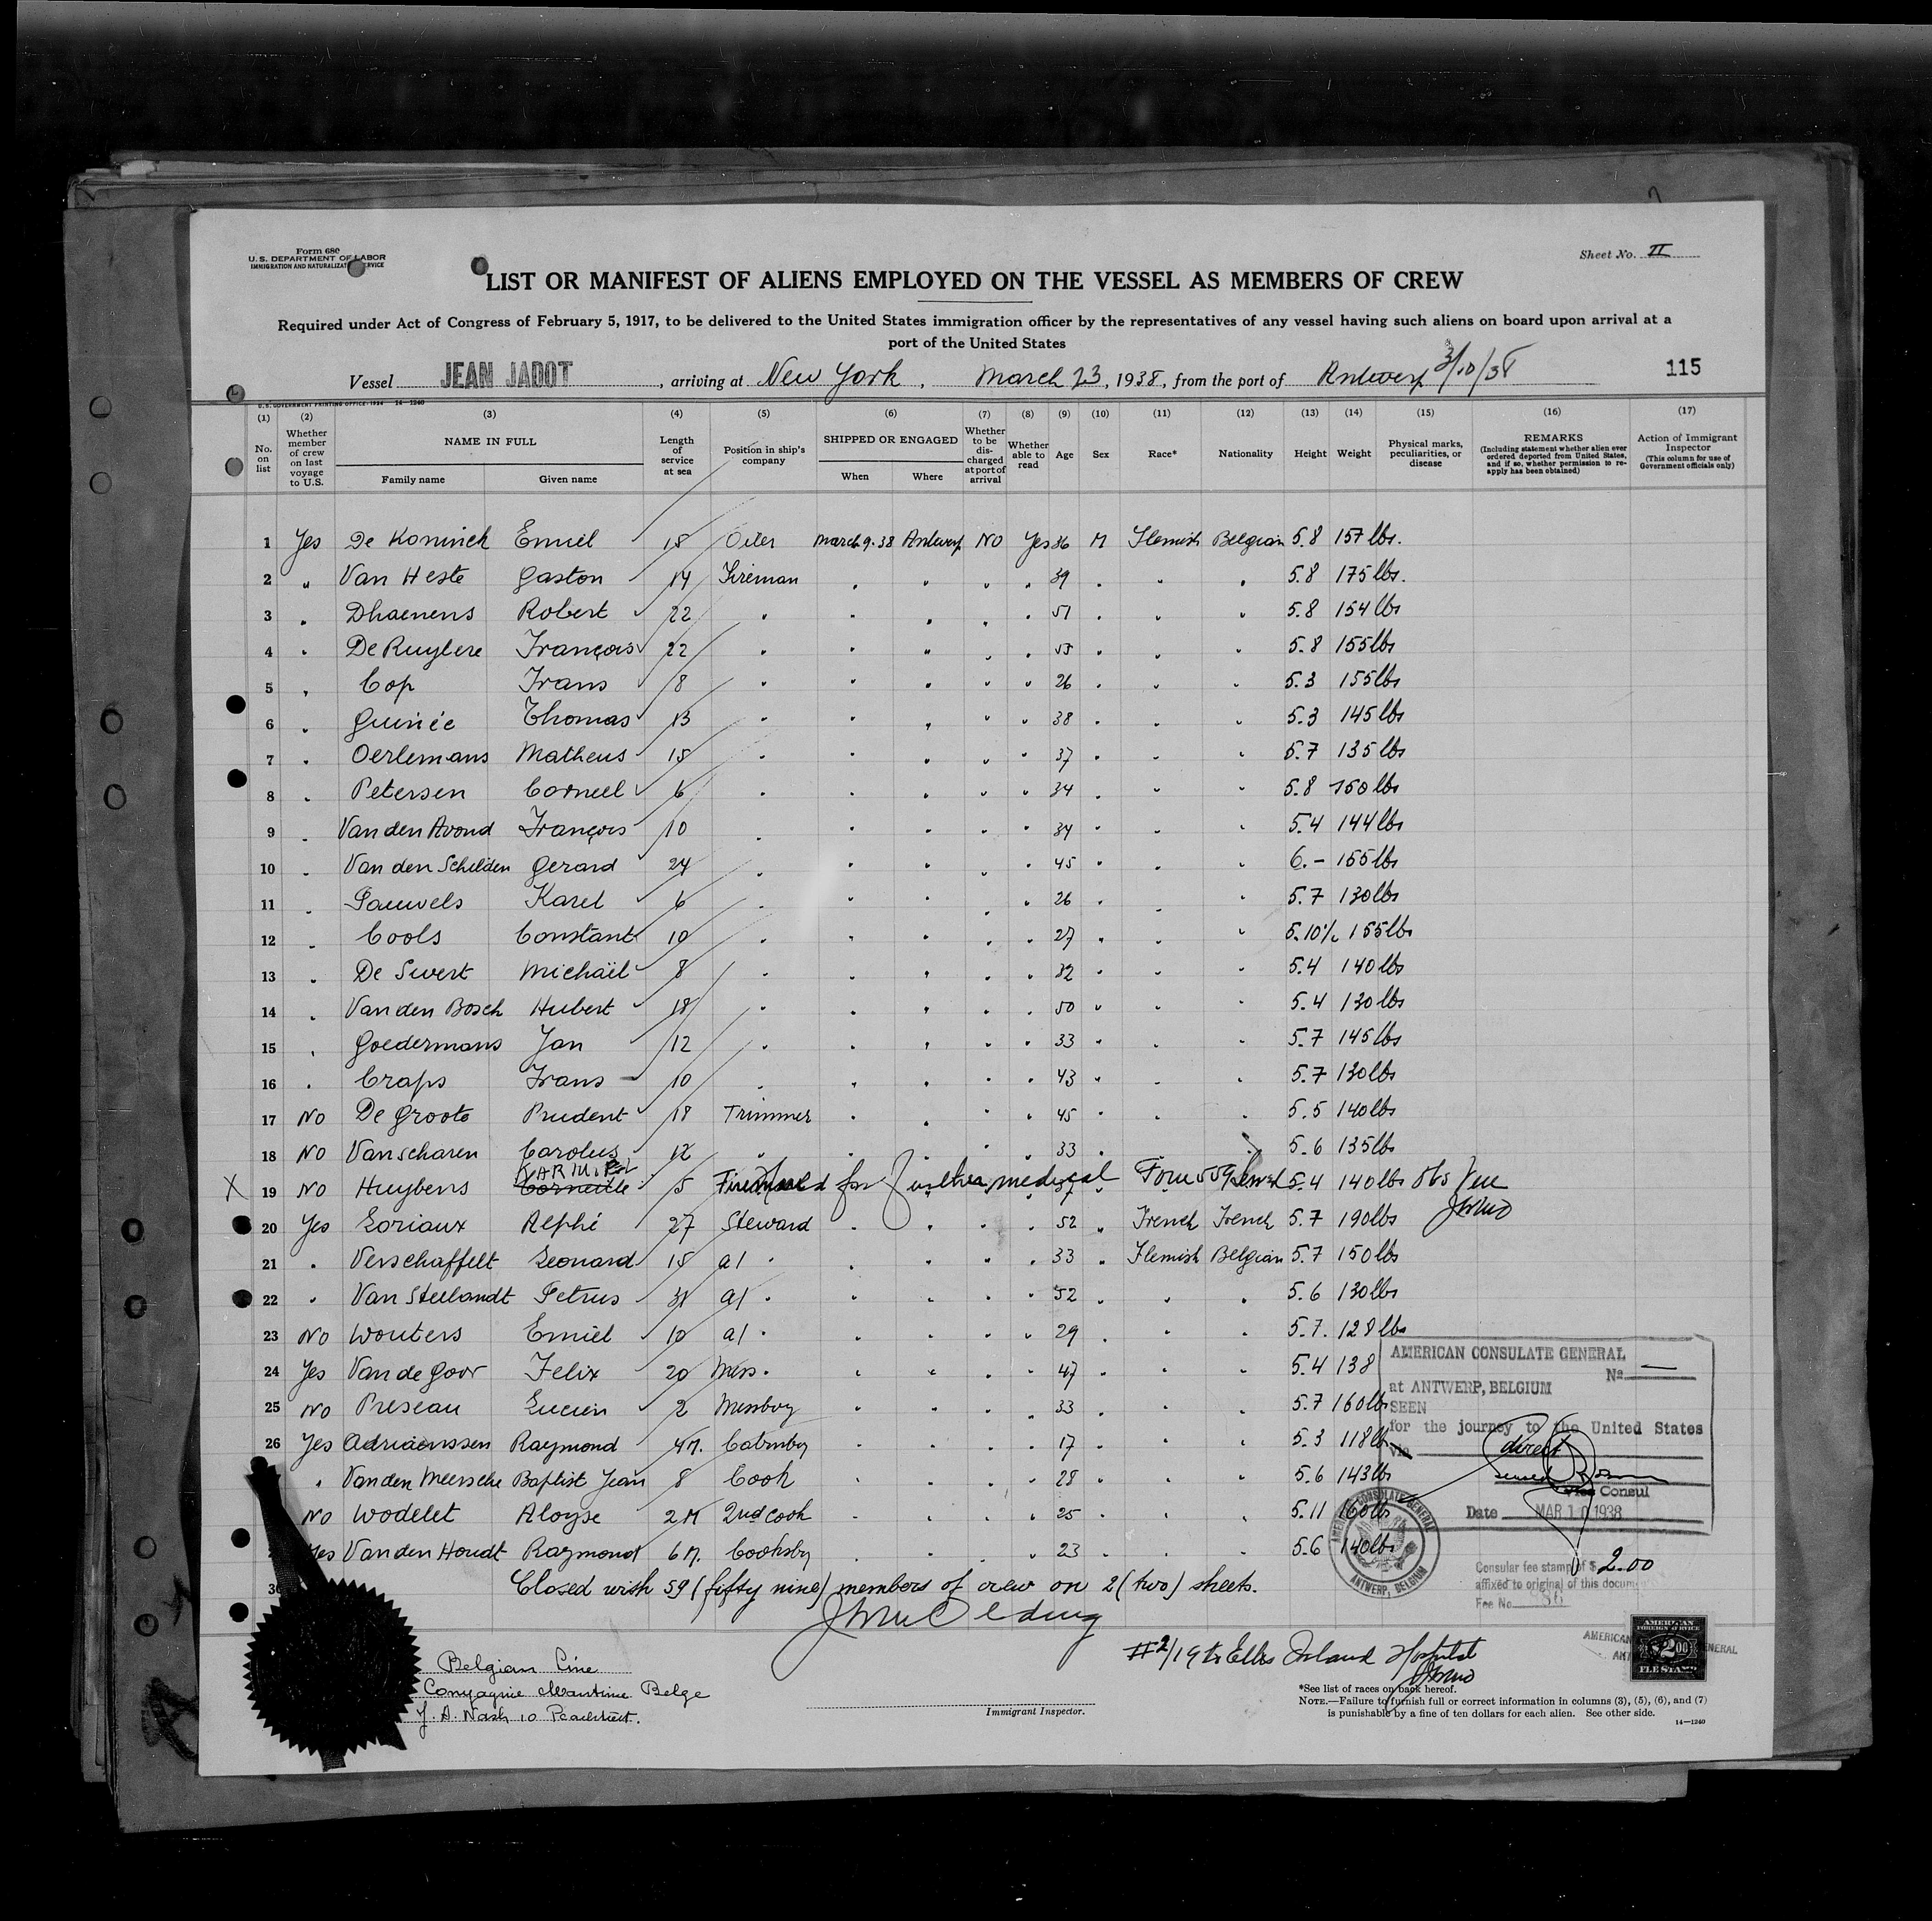 Form 680
U. S. DEPARTMENT OF LABOR
IMMIGRATION AND NATURALIZATION SERVICE
Sheet No. II
LIST OR MANIFEST OF ALIENS EMPLOYED ON THE VESSEL AS MEMBERS OF CREW
Required under Act of Congress of February 5, 1917, to be delivered to the United States immigration officer by the representatives of any vessel having such aliens on board upon arrival at a
port of the United States
Vessel JEAN JADOT, arriving at New York, March 23, 1938, from the port of Antwerp 3/10/38 115
U. S. GOVERNMENT PRINTING OFFICE: 1934 14—1240
(1) (2) (3) (4) (5) (6) (7) (8) (9) (10) (11) (12) (13) (14) (15) (16) (17)
No. on list
Whether member of crew on last voyage to U.S.
NAME IN FULL
Family name Given name
Length of service at sea
Position in ship's company
SHIPPED OR ENGAGED
When Where
Whether to be discharged at port of arrival
Whether able to read
Age
Sex
Race*
Nationality
Height
Weight
Physical marks, peculiarities, or disease
REMARKS
(Including statement whether alien ever ordered deported from United States, and if so, whether permission to reapply has been obtained)
Action of Immigrant Inspector
(This column for use of Government officials only)
1 Yes De Koninck Emiel 18 Oiler March 9.38 Antwerp NO Yes 36 M Flemish Belgian 5.8 157 lbs.
2 " Van Heste Gaston 14 Fireman " " " " 39 " " " 5.8 175 lbs.
3 " Dhaenens Robert 22 " " " " " 51 " " " 5.8 154 lbs
4 " De Ruytere François 22 " " " " " " " " 5.8 155 lbs
5 " Cop Frans 8 " " " " " 26 " " " 5.3 155 lbs
6 " Guinée Thomas 13 " " " " " 38 " " " 5.3 145 lbs
7 " Oerlemans Matheus 15 " " " " " 37 " " " 5.7 135 lbs
8 " Petersen Corneel 6 " " " " " 34 " " " 5.8 150 lbs
9 " Van den Avond François 10 " " " " " 34 " " " 5.4 144 lbs
10 " Van den Schelden Gerard 24 " " " " " 45 " " " 6.- 155 lbs
11 " Pauwels Karel 6 " " " " " 26 " " " 5.7 130 lbs
12 " Cools Constant 10 " " " " " 27 " " " 5.10½ 155 lbs
13 " De Swert Michaël 8 " " " " " 32 " " " 5.4 140 lbs
14 " Van den Bosch Hubert 18 " " " " " 50 " " " 5.4 130 lbs
15 " Goedermans Jan 12 " " " " " 33 " " " 5.7 145 lbs
16 " Craps Frans 10 " " " " " 43 " " " 5.7 130 lbs
17 NO De Groote Prudent 18 Trimmer " " " " 45 " " " 5.5 140 lbs
18 NO Vanscharen Carolus 12 " " " " " 33 " " " 5.6 135 lbs
X 19 NO Huybens Corneille 5 Fireman Held for further medical Form 559 37 5.4 140 lbs
20 Yes Loriaux Alphé 27 Steward " " " " 52 " French French 5.7 190 lbs
21 " Verschaffelt Leonard 15 a/ " " " " " 33 " Flemish Belgian 5.7 150 lbs
22 " Van Steelandt Petrus 31 a/ " " " " " 52 " " " 5.6 130 lbs
23 NO Wouters Emiel 10 a/ " " " " " 29 " " " 5.7. 128 lbs
24 Yes Van de Goor Felix 20 Mess " " " " " 47 " " " 5.4 138
25 NO Preseau Lucien 2 Messboy " " " " 33 " " " 5.7 160 lbs
26 Yes Adriaenssen Raymond 4M. Cabinboy " " " " 17 " " " 5.3 118 lb
" Van den Meersche Baptist Jean 8 Cook " " " " 28 " " " 5.6 143 lbs
NO Wodelet Aloyse 2M 2nd cook " " " " 25 " " " 5.11 160 lbs
Yes Van den Houdt Raymond 6M. Cooksby " " " " 23 " " " 5.6 140 lbs
30 Closed with 59 (fifty nine) members of crew on 2 (two) sheets.
AMERICAN CONSULATE GENERAL
No. —
at ANTWERP, BELGIUM
SEEN
for the journey to the United States
via direct
Vice Consul
Date MAR 10 1938
AMERICAN CONSULATE GENERAL
ANTWERP, BELGIUM
Consular fee stamp of $ 2.00
affixed to original of this document
Fee No. 86
Belgian Line
Compagnie Maritime Belge
J. A. Nash 10 Pearlstreet.
#2/19 to Ellis Island Hospital
Immigrant Inspector.
AMERICAN FOREIGN SERVICE
$2.00
FEE STAMP
*See list of races on back hereof.
NOTE.—Failure to furnish full or correct information in columns (3), (5), (6), and (7)
is punishable by a fine of ten dollars for each alien. See other side.
14—1240